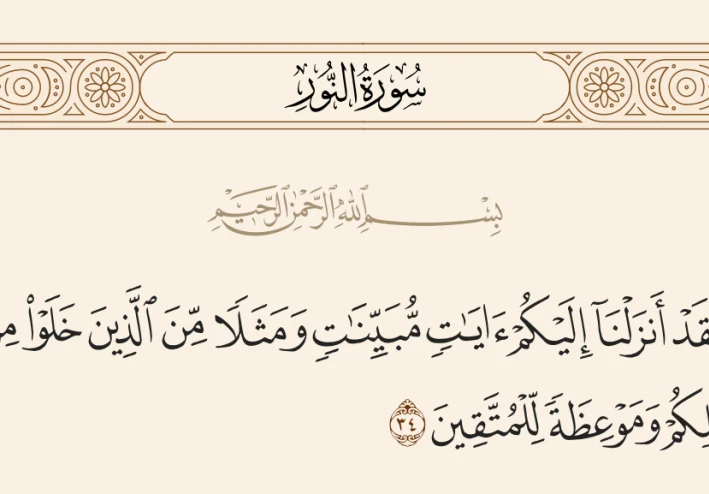 سُورَةُ النُّورِ
بِسْمِ ٱللَّهِ ٱلرَّحْمَٰنِ ٱلرَّحِيمِ
قَدْ أَنزَلْنَآ إِلَيْكُمْ ءَايَٰتٍ مُّبَيِّنَٰتٍ وَمَثَلًا مِّنَ ٱلَّذِينَ خَلَوْا۟ مِن
لِكُمْ وَمَوْعِظَةً لِّلْمُتَّقِينَ ٣٤